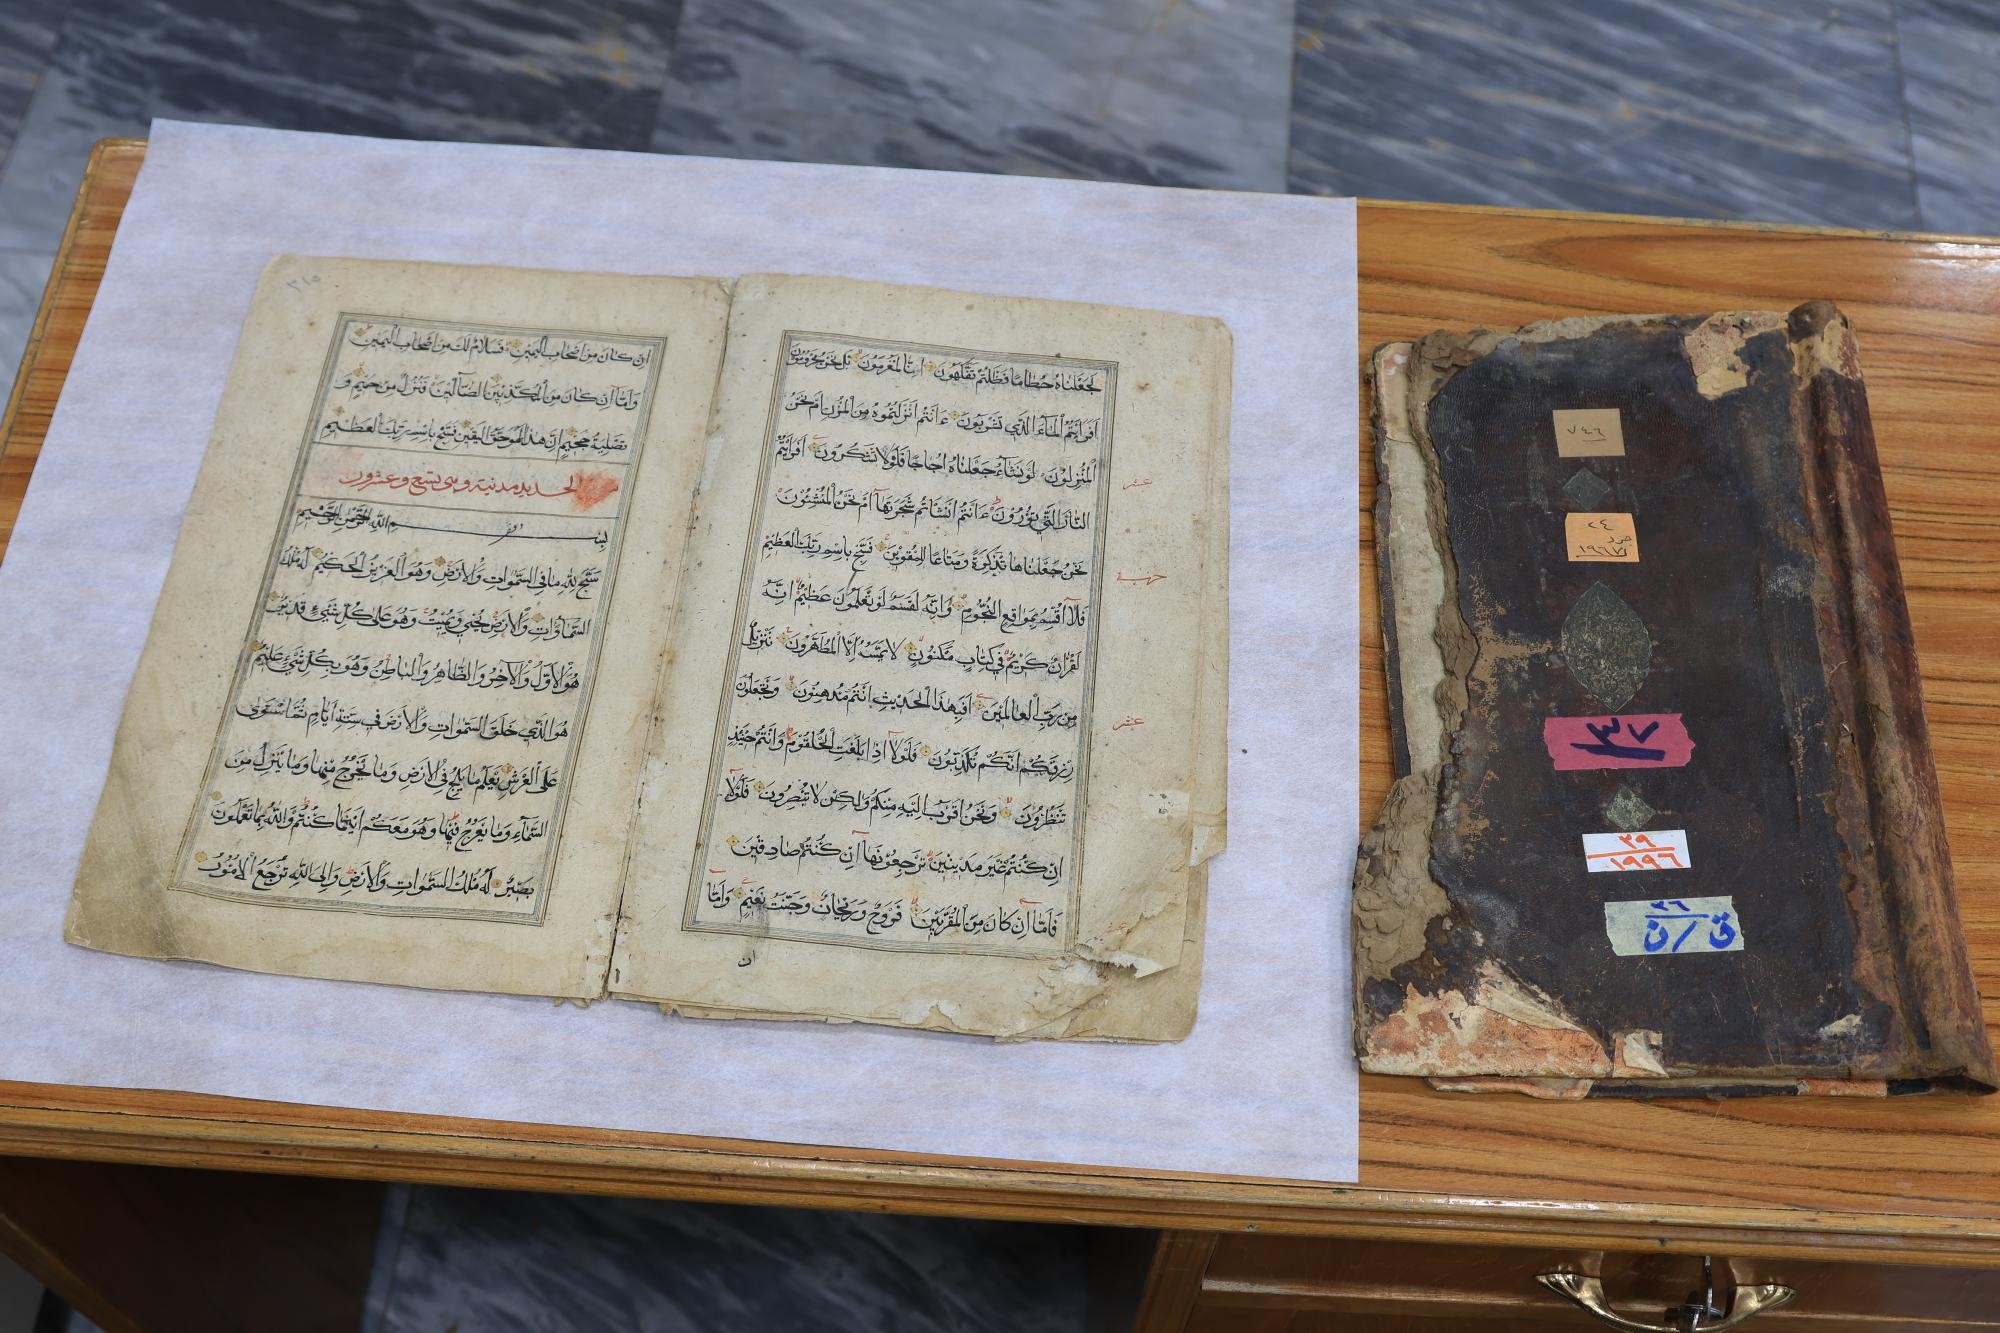 لجعلناه حطاما فظلتم تفكهون انا لمغرمون بل نحن محرومون
افرايتم الماء الذي تشربون ءانتم انزلتموه من المزن ام نحن
المنزلون لو نشاء جعلناه اجاجا فلولا تشكرون افرايتم
عشر
النار التي تورون ءانتم انشاتم شجرتها ام نحن المنشئون
نحن جعلناها تذكرة ومتاعا للمقوين فسبح باسم ربك العظيم
فلا اقسم بمواقع النجوم وانه لقسم لو تعلمون عظيم انه
لقران كريم في كتاب مكنون لا يمسه الا المطهرون تنزيل
من رب العالمين افبهذا الحديث انتم مدهنون وتجعلون
عشر
رزقكم انكم تكذبون فلولا اذا بلغت الحلقوم وانتم حينئذ
تنظرون ونحن اقرب اليه منكم ولكن لا تبصرون فلولا
ان كنتم غير مدينين ترجعونها ان كنتم صادقين
فاما ان كان من المقربين فروح وريحان وجنت نعيم واما
ان
٣١٥
ان كان من اصحاب اليمين فسلام لك من اصحاب اليمين
واما ان كان من المكذبين الضالين فنزل من حميم و
تصلية جحيم ان هذا لهو حق اليقين فسبح باسم ربك العظيم
الحديد مدنية وهي تسع وعشرون
بسم الله الرحمن الرحيم
سبح لله ما في السموات والارض وهو العزيز الحكيم له ملك
السماوات والارض يحيي ويميت وهو على كل شيء قدير
هو الاول والاخر والظاهر والباطن وهو بكل شيء عليم
هو الذي خلق السموات والارض في ستة ايام ثم استوى
على العرش يعلم ما يلج في الارض وما يخرج منها وما ينزل من
السماء وما يعرج فيها وهو معكم اينما كنتم والله بما تعملون
بصير له ملك السموات والارض والى الله ترجع الامور
٧٤٦
٢٤
جرد
١٩٦٧
٣٧
٢٩
١٩٩٦
٣٦
ق/ن